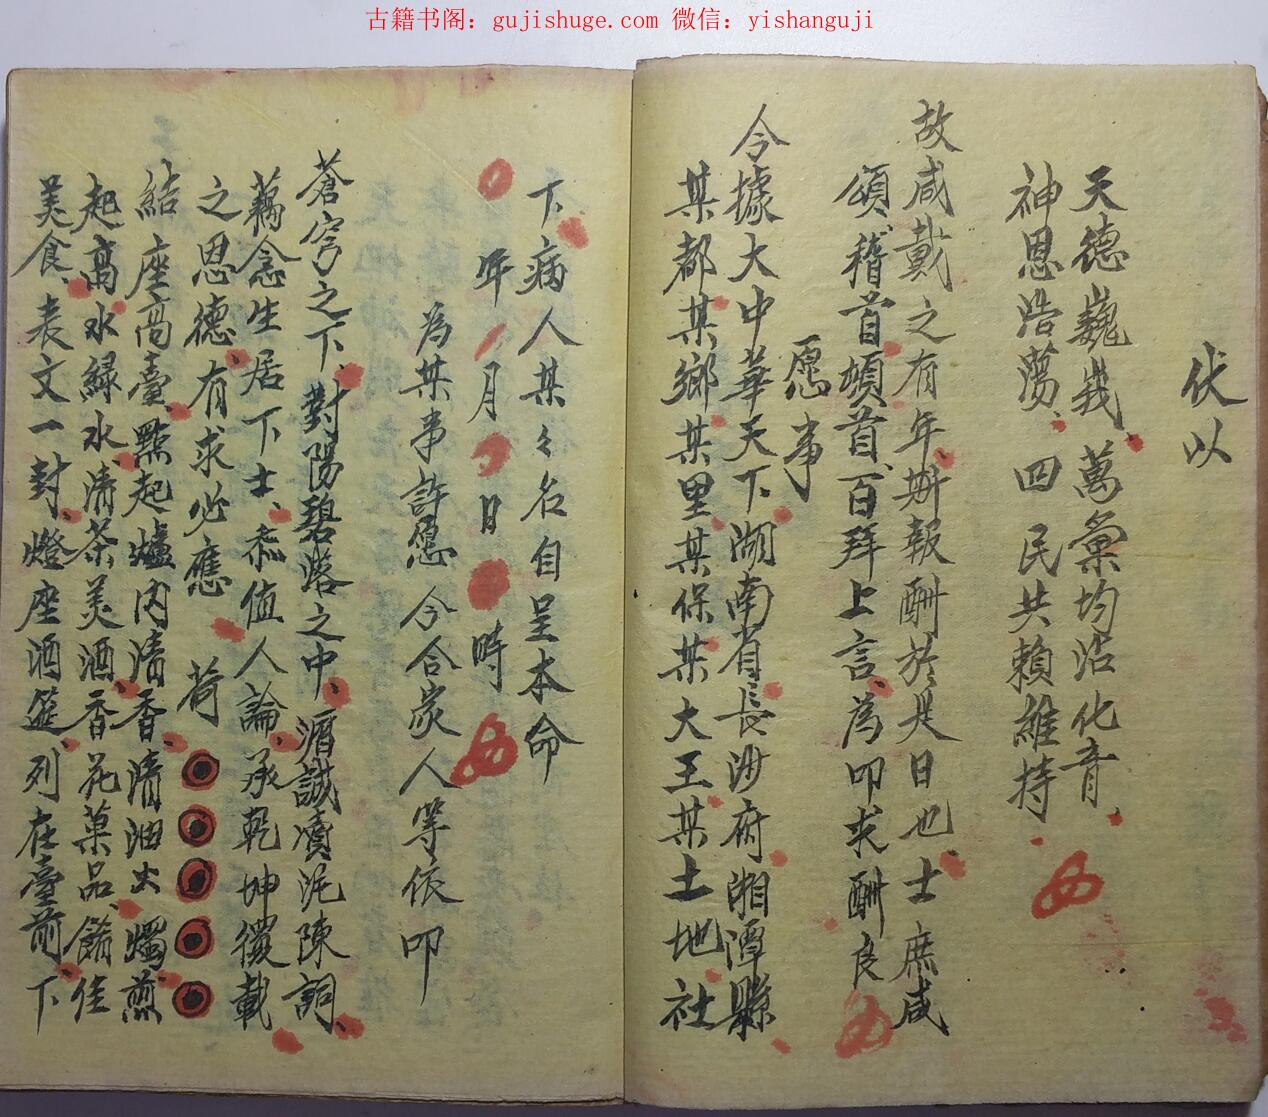 古籍书阁：gujishuge.com 微信：yishanguji
伏以
天德巍峩萬彙均沾化育
神恩浩蕩四民共賴維持
故咸戴之有年斯報酬於是日也士庶咸
頌稽首頓首百拜上言為叩求酬良
愿事
今據大中華天下湖南省長沙府湘潭縣
某都某鄉某里某保某大王某土地社
下病人某々名自呈本命
年月日時
為某事許愿今合家人等依叩
蒼穹之下對陽碧落之中涓誠瀆沱陳詞
藕念生居下士忝值人論承乾坤覆載
之恩德有求必應荷
結座高臺點起爐內清香清油火燭煎
起高水緑水清茶美酒香花菓品餚佳
美食表文一封燈座酒筵列在臺前下